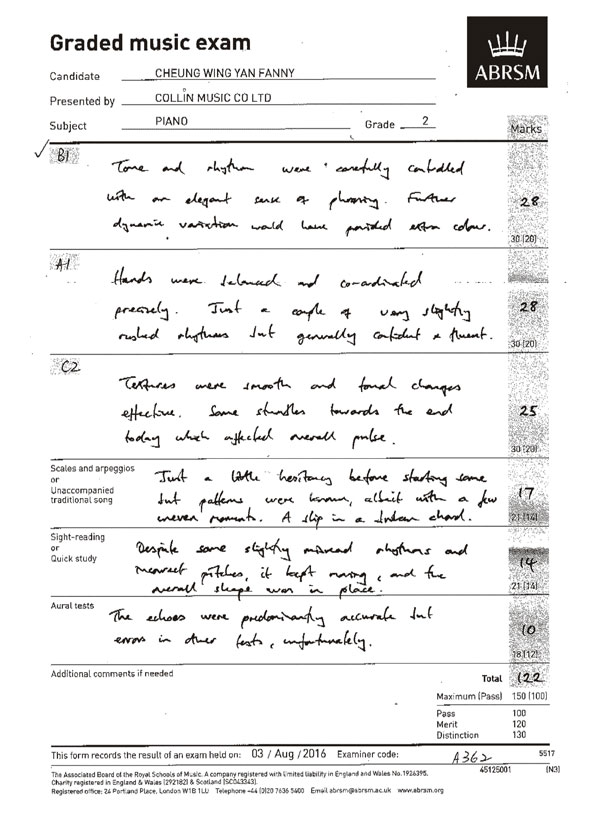 Graded music exam
ABRSM
Candidate CHEUNG WING YAN FANNY
Presented by COLLIN MUSIC CO LTD
Subject PIANO Grade 2
Marks
B1
Tone and rhythm were carefully controlled
with an elegant sense of phrasing. Further
dynamic variation would have provided extra colour.
28
30 (20)
A1
Hands were balanced and co-ordinated
precisely. Just a couple of very slightly
rushed rhythms but generally confident & fluent.
28
30 (20)
C2
Textures were smooth and tonal changes
effective. Some stumbles towards the end
today which affected overall pulse.
25
30 (20)
Scales and arpeggios
or
Unaccompanied
traditional song
Just a little hesitancy before starting some
but patterns were known, albeit with a few
uneven moments. A slip in a broken chord.
17
21 (14)
Sight-reading
or
Quick study
Despite some slightly misread rhythms and
incorrect pitches, it kept moving, and the
overall shape was in place.
14
21 (14)
Aural tests
The echoes were predominantly accurate but
errors in other tests, unfortunately.
10
18 (12)
Additional comments if needed
Total 122
Maximum (Pass) 150 (100)
Pass 100
Merit 120
Distinction 130
This form records the result of an exam held on: 03 / Aug / 2016 Examiner code: A362 5517
45125001 (N3)
The Associated Board of the Royal Schools of Music. A company registered with limited liability in England and Wales No.1926395.
Charity registered in England & Wales (292182) & Scotland (SC043343).
Registered office: 24 Portland Place, London W1B 1LU Telephone +44 (0)20 7636 5400 Email abrsm@abrsm.ac.uk www.abrsm.org